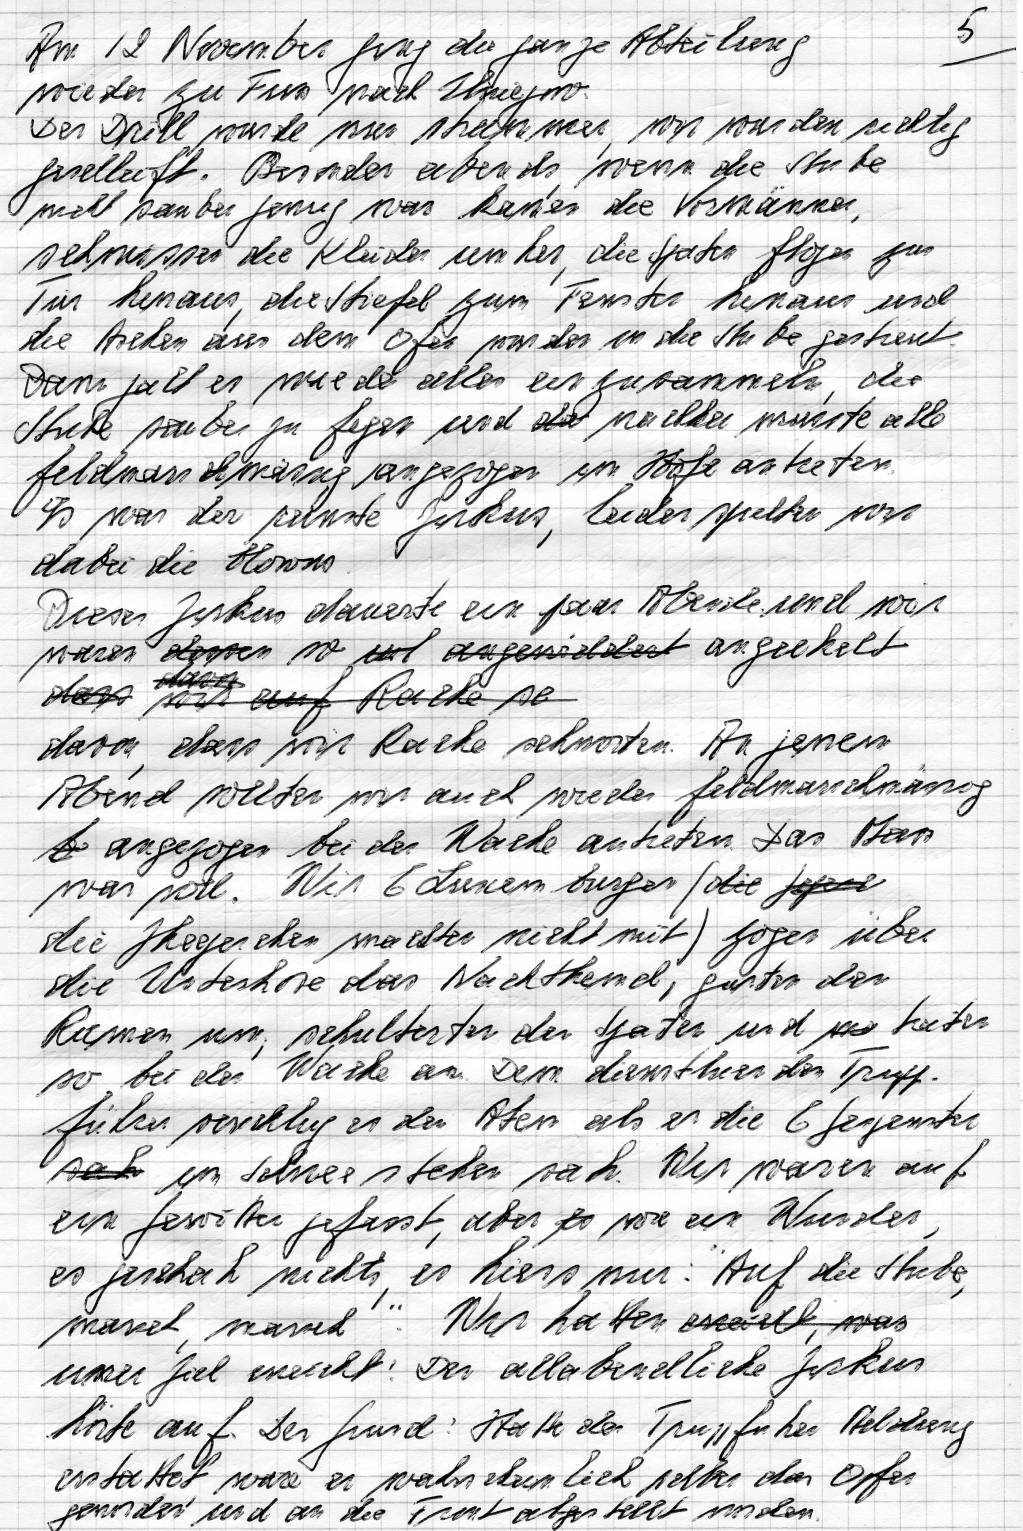 5
Am 12 November ging die ganze Abteilung
wieder zu Fuss nach
Der Drill wurde nun strammer, wir wurden richtig
geschleift. Besonder abends wenn die Stube
nicht sauber genug war kamen die Vormänner,
schmissen die Kleider umher, die Spaten flogen zur
Tür hinaus, die Stiefel zum Fenster hinaus und
die Aschen aus dem Ofen wurden in die Stube gestreut.
Dann galt es wieder alles einzusammeln, die
Stube sauber zu fegen und nachher musste alle
feldmarschmässig angezogen im Hofe antreten.
Es war der reinste Zirkus, leider spielten wir
dabei die Clowns.
Dieser Zirkus dauerte ein paar Abende und wir
waren so angeekelt
dass wir auf Rache so
davon, dass wir Rache schworten. An jenem
Abend sollten wir auch wieder feldmarschmässig
angezogen bei der Wache antreten. Das Mass
war voll. Wir 6 Luxemburger (die
die Jhaerchen machten nicht mit) zogen über
die Unterhose das Nachthemd, gurten den
Riemen um, schulterten den Spaten und traten
so bei der Wache an. Dem diensttuenden Trupp-
führer verschlug es den Atem als er die 6 Gespenster
sah im Schnee stehen sah. Wir waren auf
ein Gewitter gefasst, aber es war ein Wunder,
es geschah nichts, es hiess nur: "Auf die Stube,
marsch, marsch". Wir hatten erreicht, was
unser Ziel erreicht! Der allabendliche Zirkus
hörte auf. Der Grund: Hatte der Truppführer Meldung
erstattet wäre er wahrscheinlich selber das Opfer
geworden und an die Front abgestellt worden.